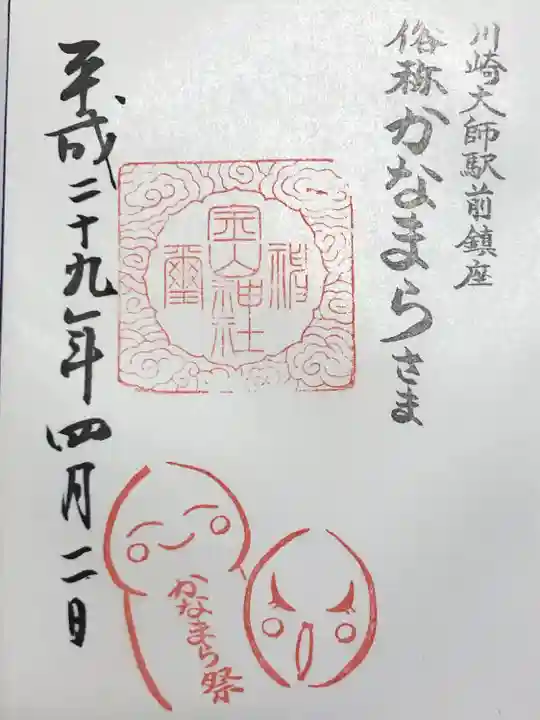 川崎大師駅前鎮座
俗称かなまらさま
金山神社
平成二十九年四月二日
かなまら祭